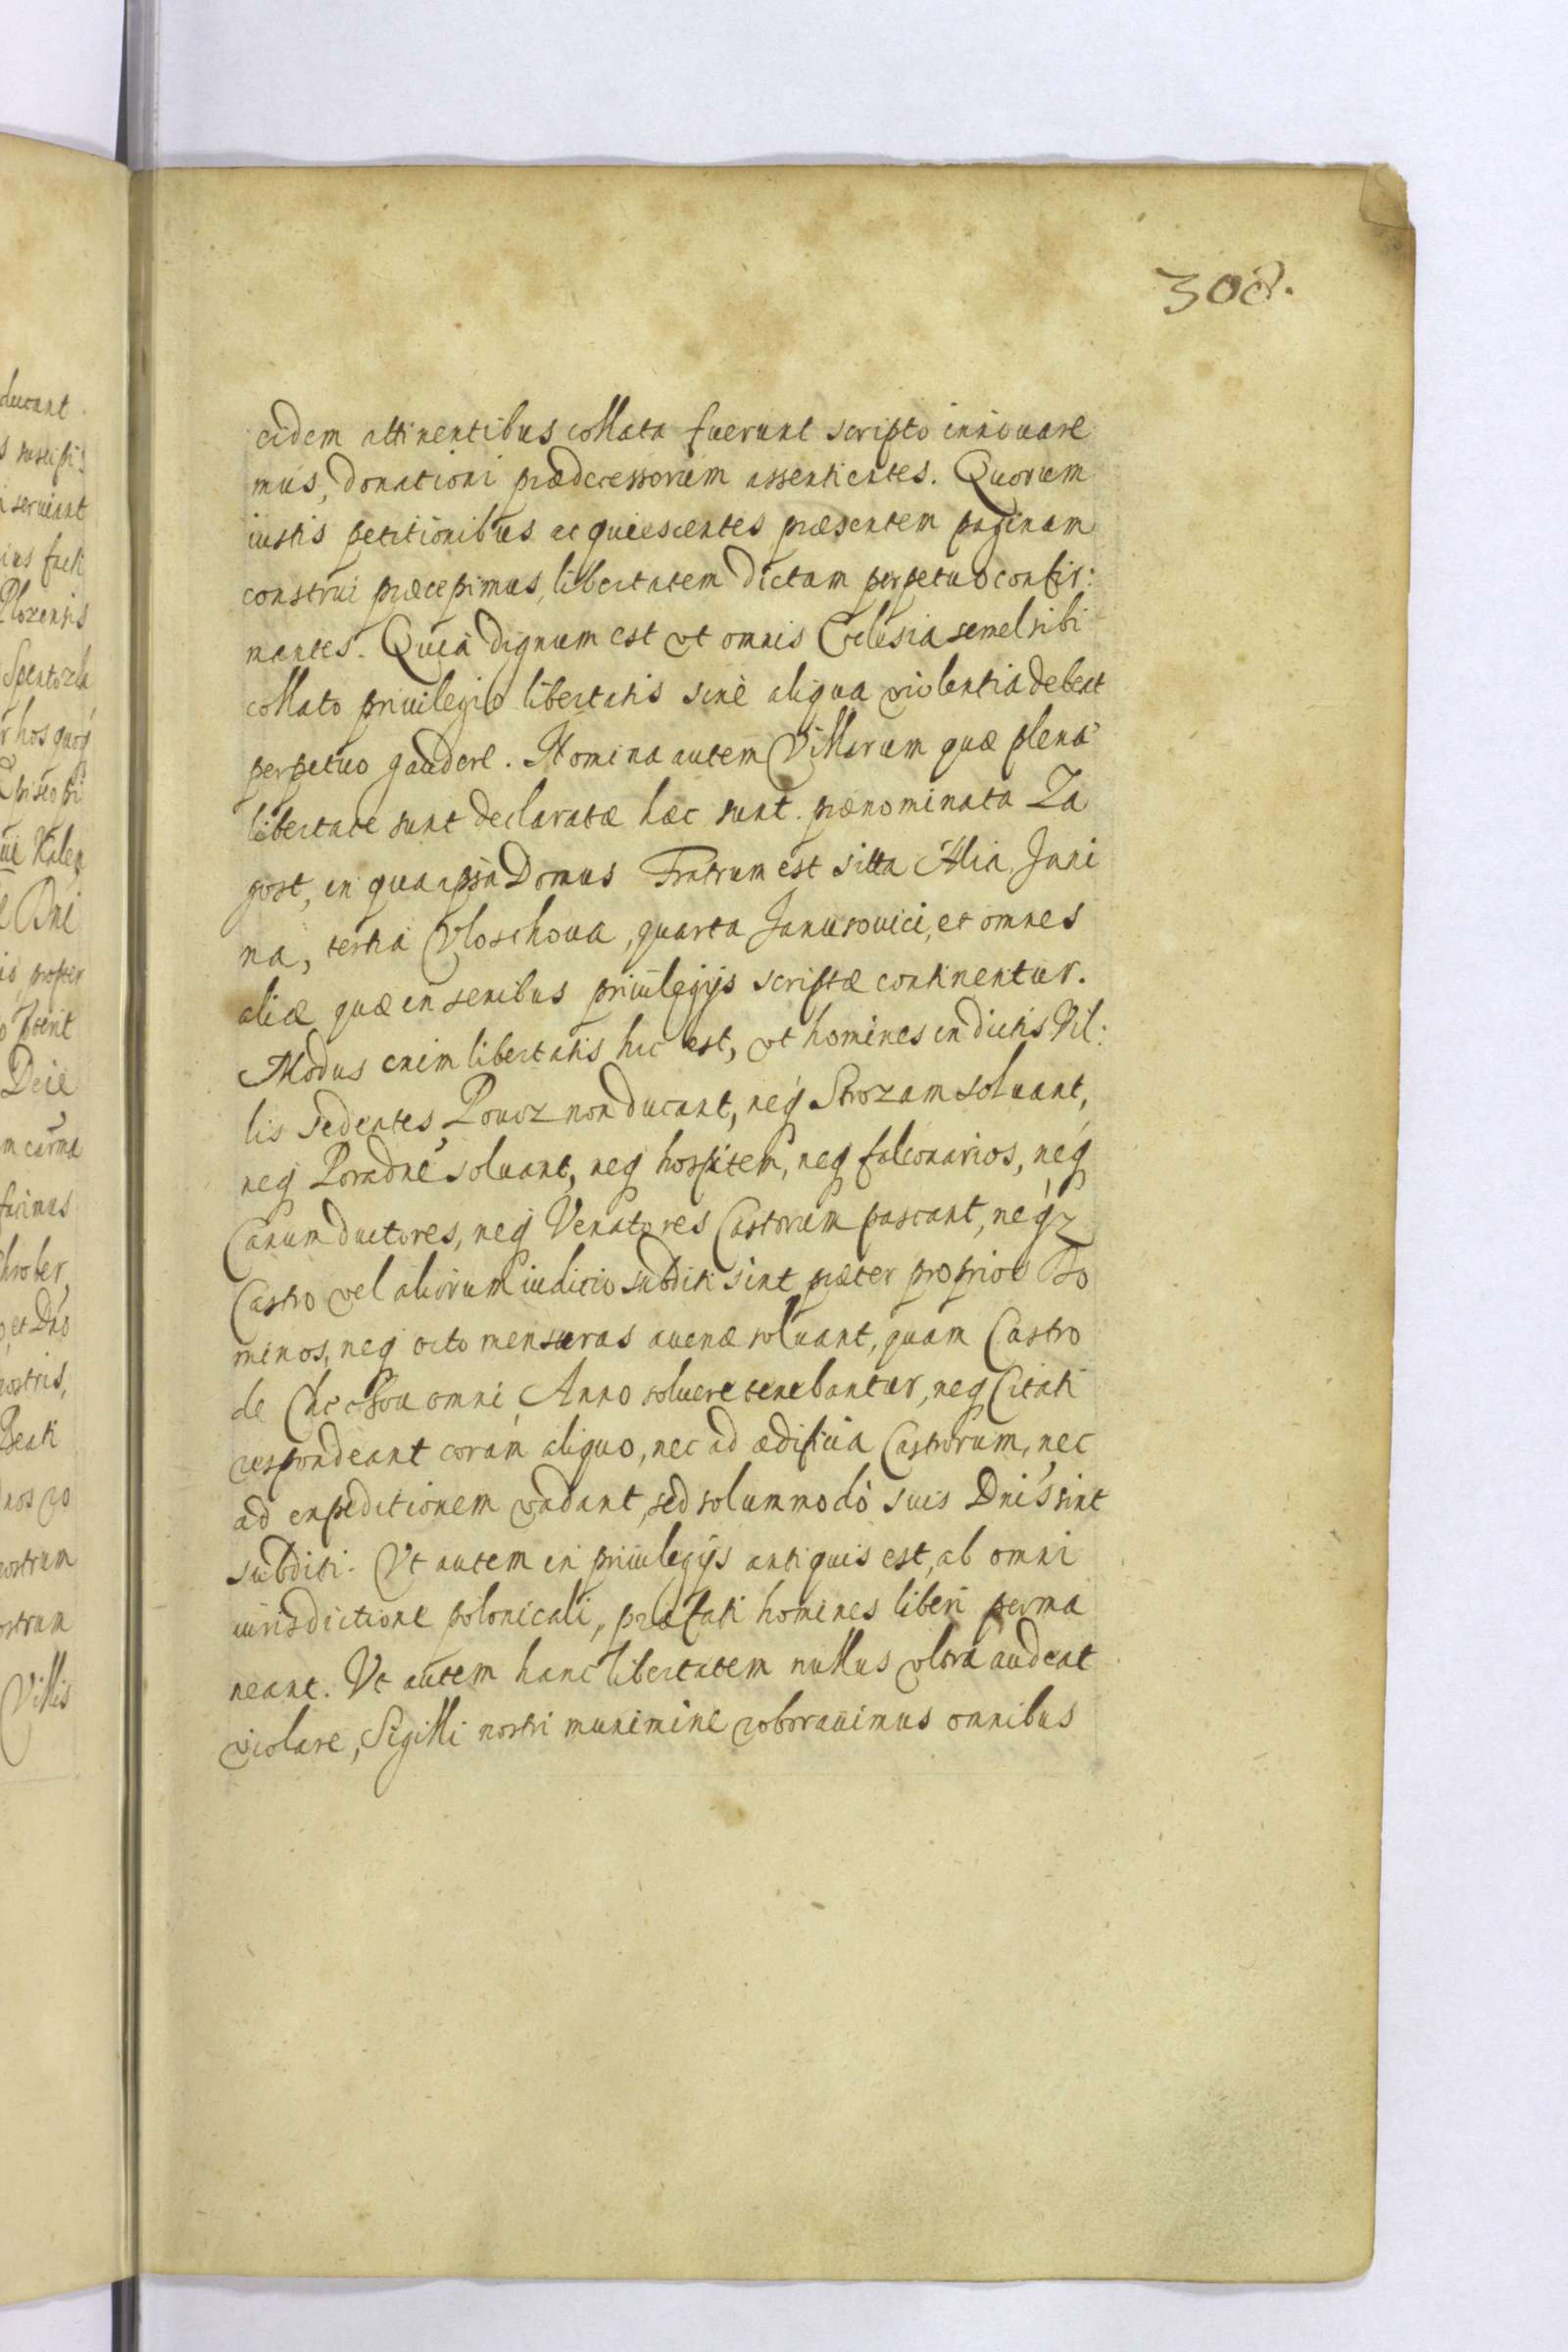 308.
eidem attinentibus collata fuerunt scripto innouare
mus, donationi prædecessorum assentientes. Quorum
iustis petitionibus acquiescentes præsentem paginam
construi præcepimus, libertatem dictam perpetuo confir:
mantes. Quià dignum est vt omnis Eclesia semel sibi
collato priuilegio libertatis sinè aliqua violentia debeat
perpetuo gaudere. Nomina autem Villarum quæ plena
libertate sunt declaratæ hæc sunt. prænominata Za
gost, in qua ipsa Domus Fratrum est sitta Alia Jani
na, tertia Vloschoua, quarta Janusouici, et omnes
aliæ quæ in senibus priuilegijs scriptæ continentur.
Modus enim libertatis hic est, vt homines in dictis Vil:
lis sedentes Pouoz non ducant, neq́ Strozam soluant,
neq Poradne soluant, neq hospitem, neq falconarios, neq́
Canum ductores, neq́ Venatores Castorum pascant, neq́z
Castro vel aliorum iudicio subditi sint præter proprios Do
minos, neq octo mensuras auenæ soluant, quam Castro
de omni Anno soluere tenebantur, neq Citati
respondeant coram aliquo, nec ad ædificia Castrorum, nec
ad expeditionem vadant, sed solummodò suis Dnis sint
subditi. Vt autem in priuilegijs antiquis est, ab omni
iurisdictione polonicali, præfati homines liberi perma
neant. Vt autem hanc libertatem nullus vltra audeat
violare, Sigilli nostri munimine roborauimus omnibus